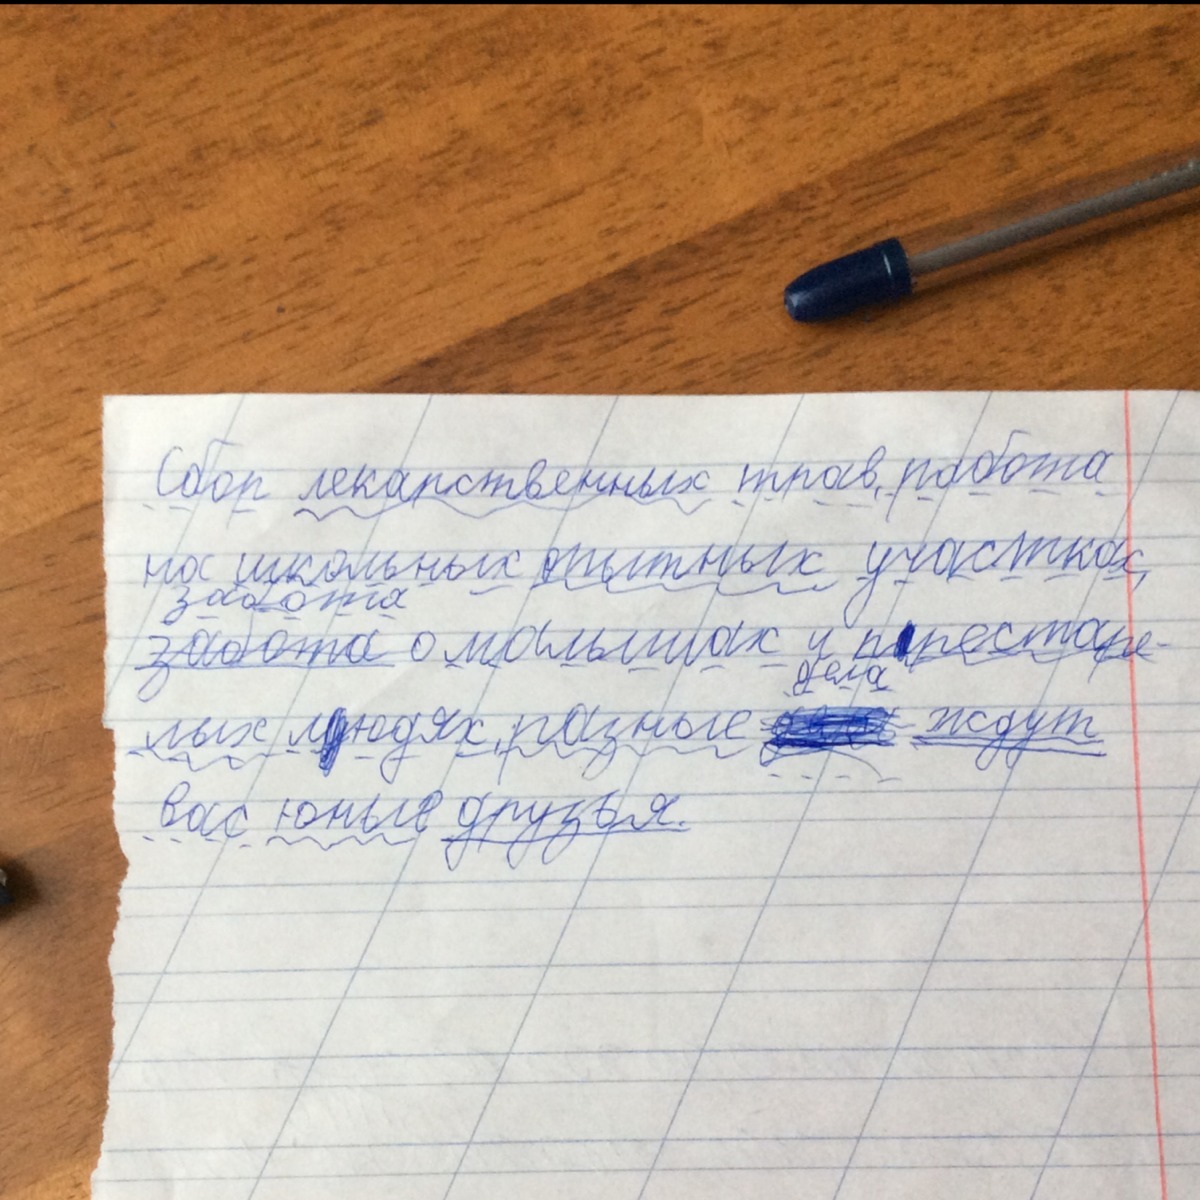 Сбор лекарственных трав, работа
на школьных опытных участках,
забота
забота о малышах и престаре-
дела
лых людях, разные ждут
вас юные друзья.